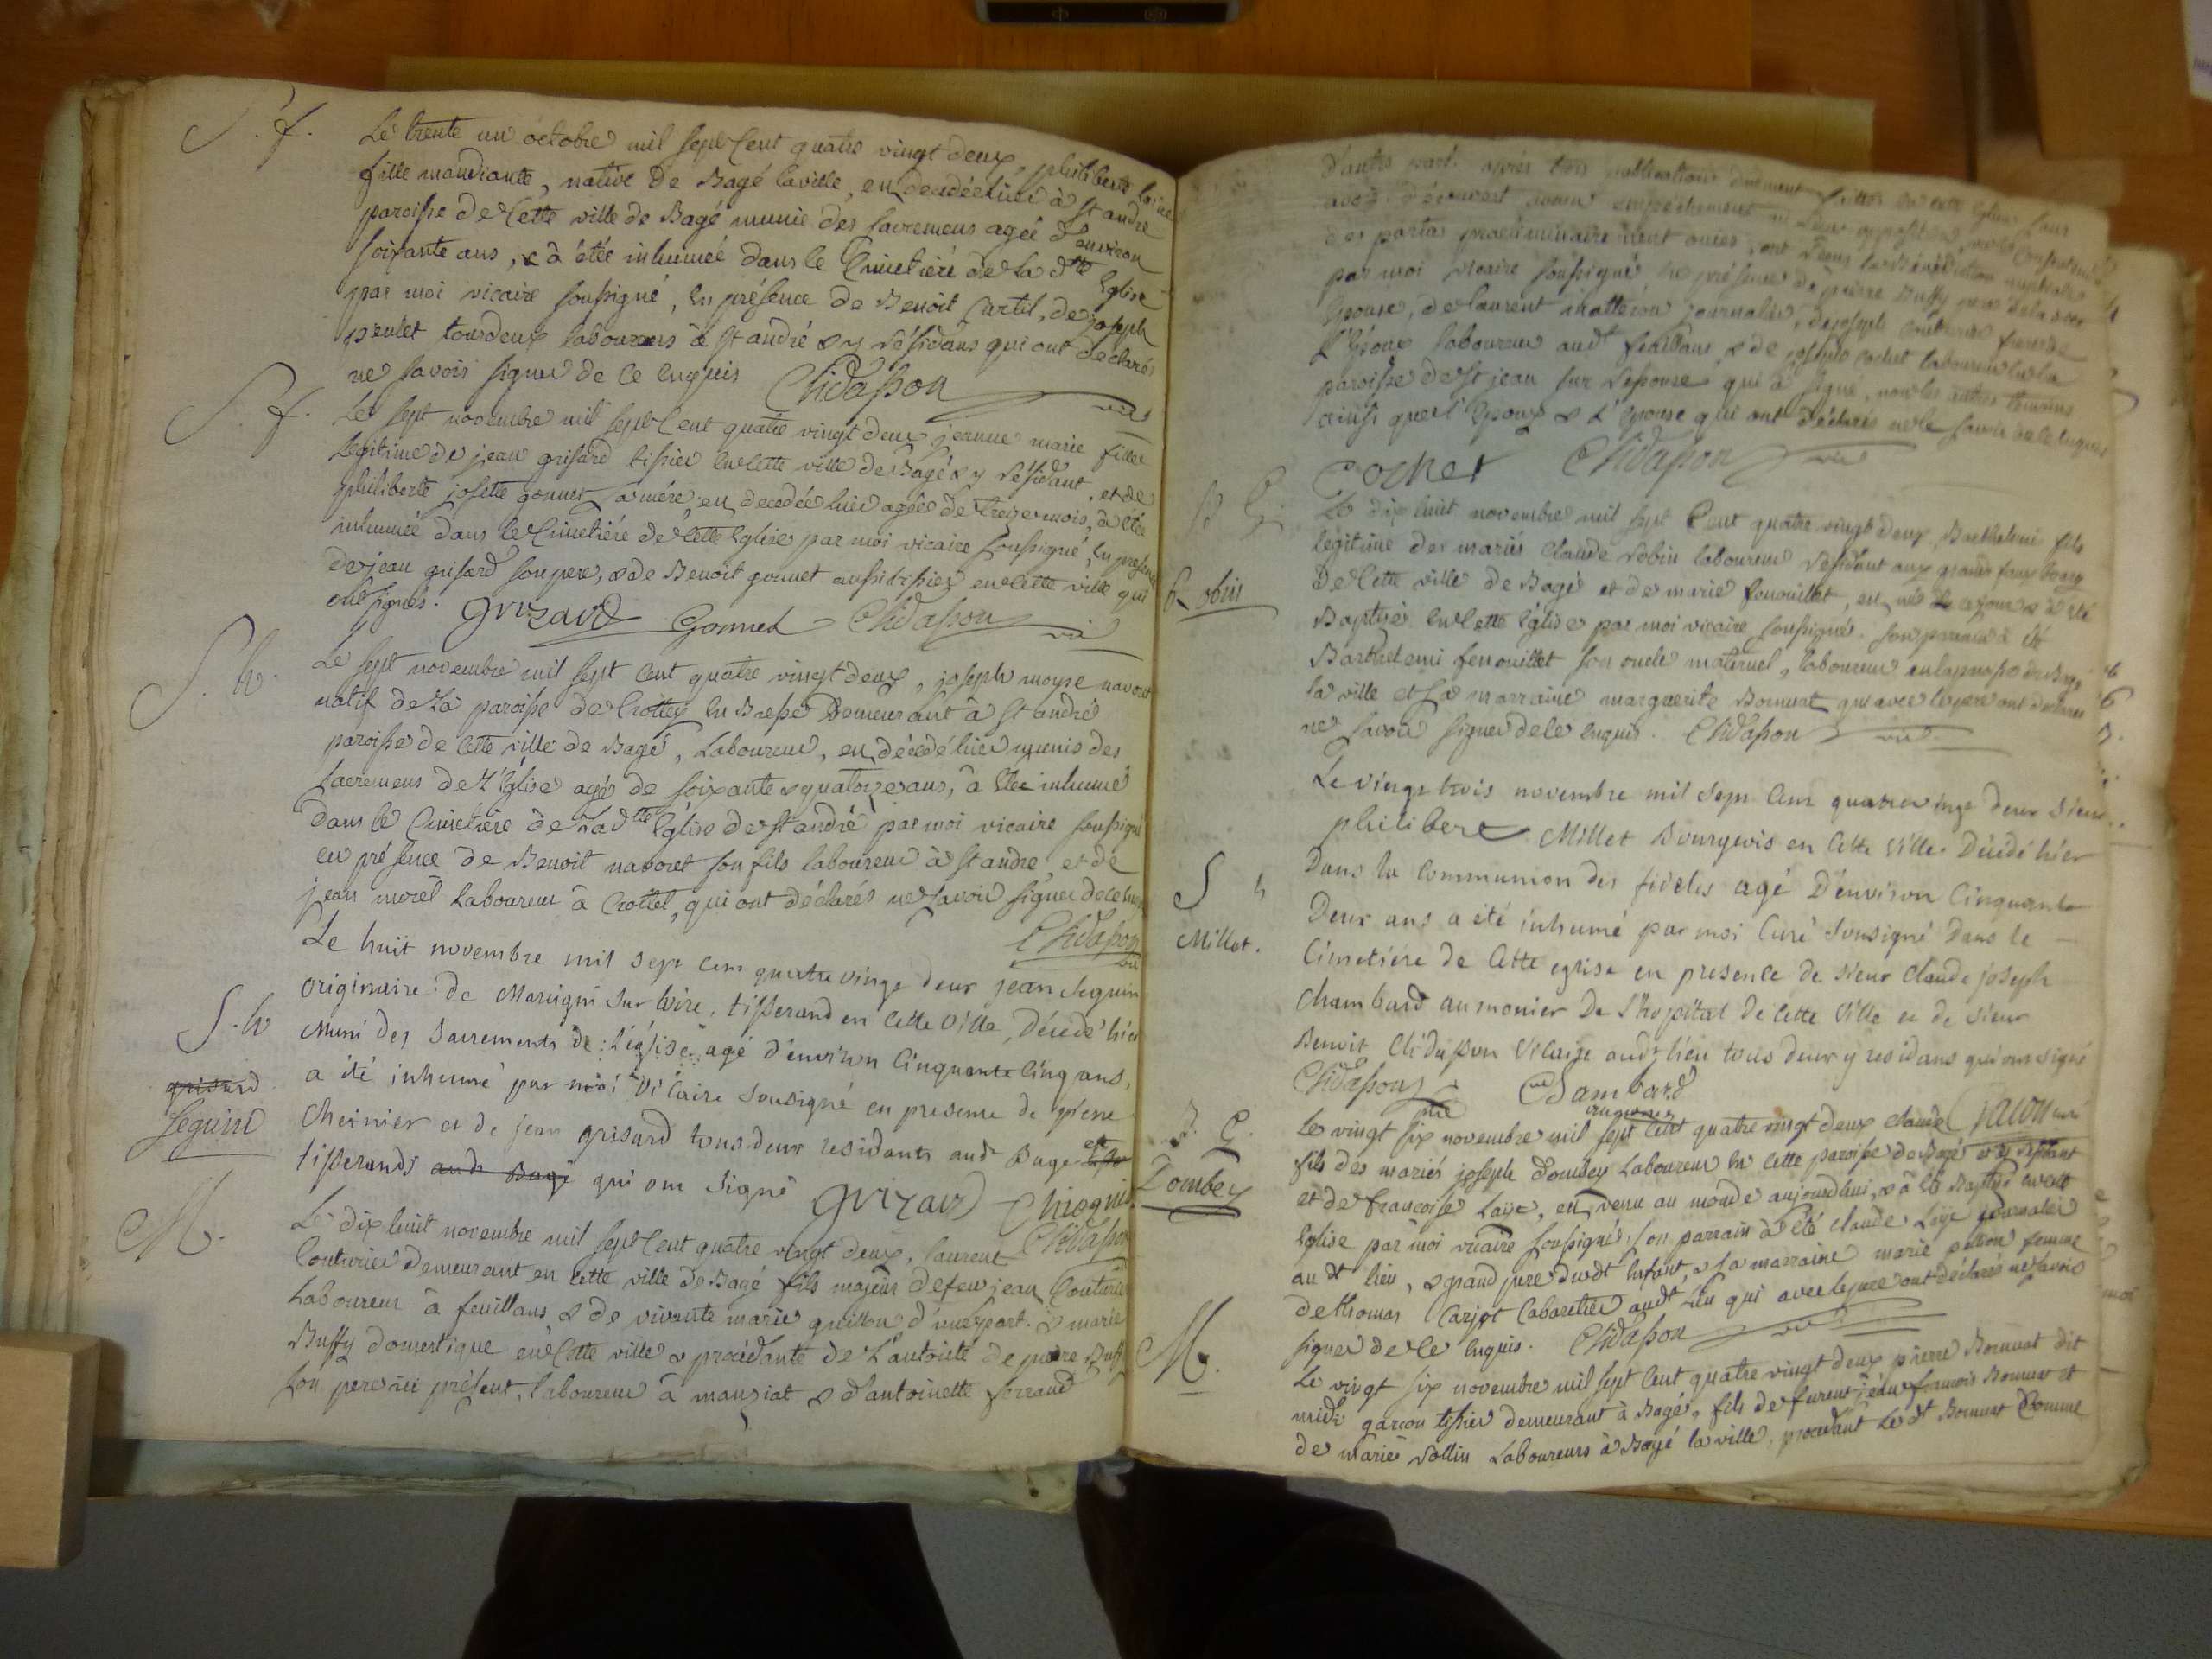 S. f.
Le trente un octobre mil sept Cent quatre vingt deux, philiberte laire
fille mandiante, native de Bagé laville, en decedée hier à St andre
paroisse de Cette ville de Bagé munie des sacremens agée d'environ
soixante ans, & à étée inhumeé dans le Cimetiére de la dtte Eglise
par moi vicaire soussigné, en présence de Benoit Curtil, de joseph
peulet tousdeux laboureurs à St andré & y résidans qui ont declarés
ne savoir signer de Ce enquis Chidasson vic
S. f.
Le sept novembre mil sept Cent quatre vingt deux jeanne marie fille
Légitime de jean grisard tissier en Cette ville de Bagé & y résidant, et de
philiberte josette gonnet sa mére, en decedée hier agée de treize mois, à étée
inhumée dans le Cimetiére de Cette Eglise par moi vicaire soussigné, en presence
de jean grisard son pere, & de Benoit gonnet aussi tissier en Cette ville qui
ont signés. Grizard Gonnet Chidasson vic
S. h.
Le sept novembre mil sept Cent quatre vingt deux, joseph moyse navoret
natif de la paroisse de Crottey en Bresse Demeurant à St andré
paroisse de Cette ville de Bagé, Laboureur, en décédé hier munis des
sacremens de L'Eglise agé de soixante & quatorze ans, à étée inhumé
dans le Cimetiére de La dtte Eglise de St andré par moi vicaire soussigné
en présence de Benoit navoret son fils laboureur à St andre, et de
jean morêl Laboureur à Crottet, qui ont déclarés ne savoir signer de Ce
Chidasson vic
S. h
grisard
Seguin
Le huit novembre mil sept Cent quatre vingt deux jean Seguin
originaire de Marcigni sur loire, tisserand en Cette Ville, Décédé hier
Muni des Sacrements de L'église agé d'environ Cinquante Cinq ans,
a été inhumé par moi Vicaire Sousigné en presence de pierre
Cheinier et de jean grisard tous deux residants audt Bagé et
tisserands audt Bagé qui ont Signé Grizard
Chidasson
M.
Le dixhuit novembre mil sept Cent quatre vingt deux, laurent
Couturier demeurant en Cette ville de Bagé fils majeur de feu jean Couturier
Laboureur à feuillans & de vivante marie guillon d'une part. & marie
Buffy domestique en Cette ville & procédante de l'autorité de pierre Buffy
son pere ici présent, laboureur à manziat & d'antoinette ferraud
d'autre part. aprés trois publications duëment faittes en cette Eglise sans
avoir découvert aucun empêchement ni
des parties preliminairement ouies, ont reçus la Bénédiction nuptiale
par moi vicaire soussigné en présence de pierre Buffy pere de la ditte
Epouse, de laurent journalier, de joseph Couturier frere de
L'Epoux laboureur audt feuillans & de joseph Cornet laboureur en la
paroisse de St jean sur Reyssouze qui à signé, non les autres temoins
ainsi que l'Epoux & L'Epouse qui ont déclarés ne le savoir de Ce enquis
Cornet Chidasson vic
B. G.
Robin
Le dix huit novembre mil sept Cent quatre vingt deux, Barthelemi fils
légitime des mariés Claude robin laboureur résidant aux grands fauxbourg
de Cette ville de Bagé et de marie fenouillet, en né Ce jour & à été
Baptisé en Cette Eglise par moi vicaire soussigné. son parrain à été
Barthelemi fenouillet son oncle maternel, laboureur en la paroisse de Bagé
la ville et sa marraine marguerite Bonnat qui avec le pere ont declarés
ne savoir signer de Ce enquis. Chidasson vic
S h
Millet.
Le vingt trois novembre mil sept Cent quatre vingt deux Sieur
philibert Millet Bourgeois en Cette Ville Décédé hier
Dans la Communion des fideles agé D'environ Cinquante
Deux ans a été inhumé par moi Curé Sousigné Dans le
Cimetiére de Cette eglise en presence de Sieur Claude joseph
Chambard aumonier De l'hopital De Cette Ville et de Sieur
Benoit Chidasson Vicaire audt lieu tous deux y residans qui ont signé
Chidasson vic Chambard jacon curé
B. G.
Dombey
Le vingt six novembre mil sept Cent quatre vingt deux Claude
fils des mariés joseph dombey Laboureur en Cette paroisse de Bagé et y résidant
et de francoise Laye, en venu au monde aujourdhui, & à été Baptisé en Cette
Eglise par moi vicaire soussigné, son parrain à été claude Laye journalier
au dt lieu, & grand pere dudt Enfant, & sa marraine marie femme
de thomas Carjot Cabaretier audt Lieu qui avec le pere ont déclarés ne savoir
signer de Ce Enquis. Chidasson vic
M.
Le vingt six novembre mil sept Cent quatre vingt deux pierre Bonnat dit
midi garcon tissier demeurant à Bagé, fils de furent jean francois Bonnat et
de marie rollin Laboureurs à Bagé la ville, procedant Le dt Bonnat Comme